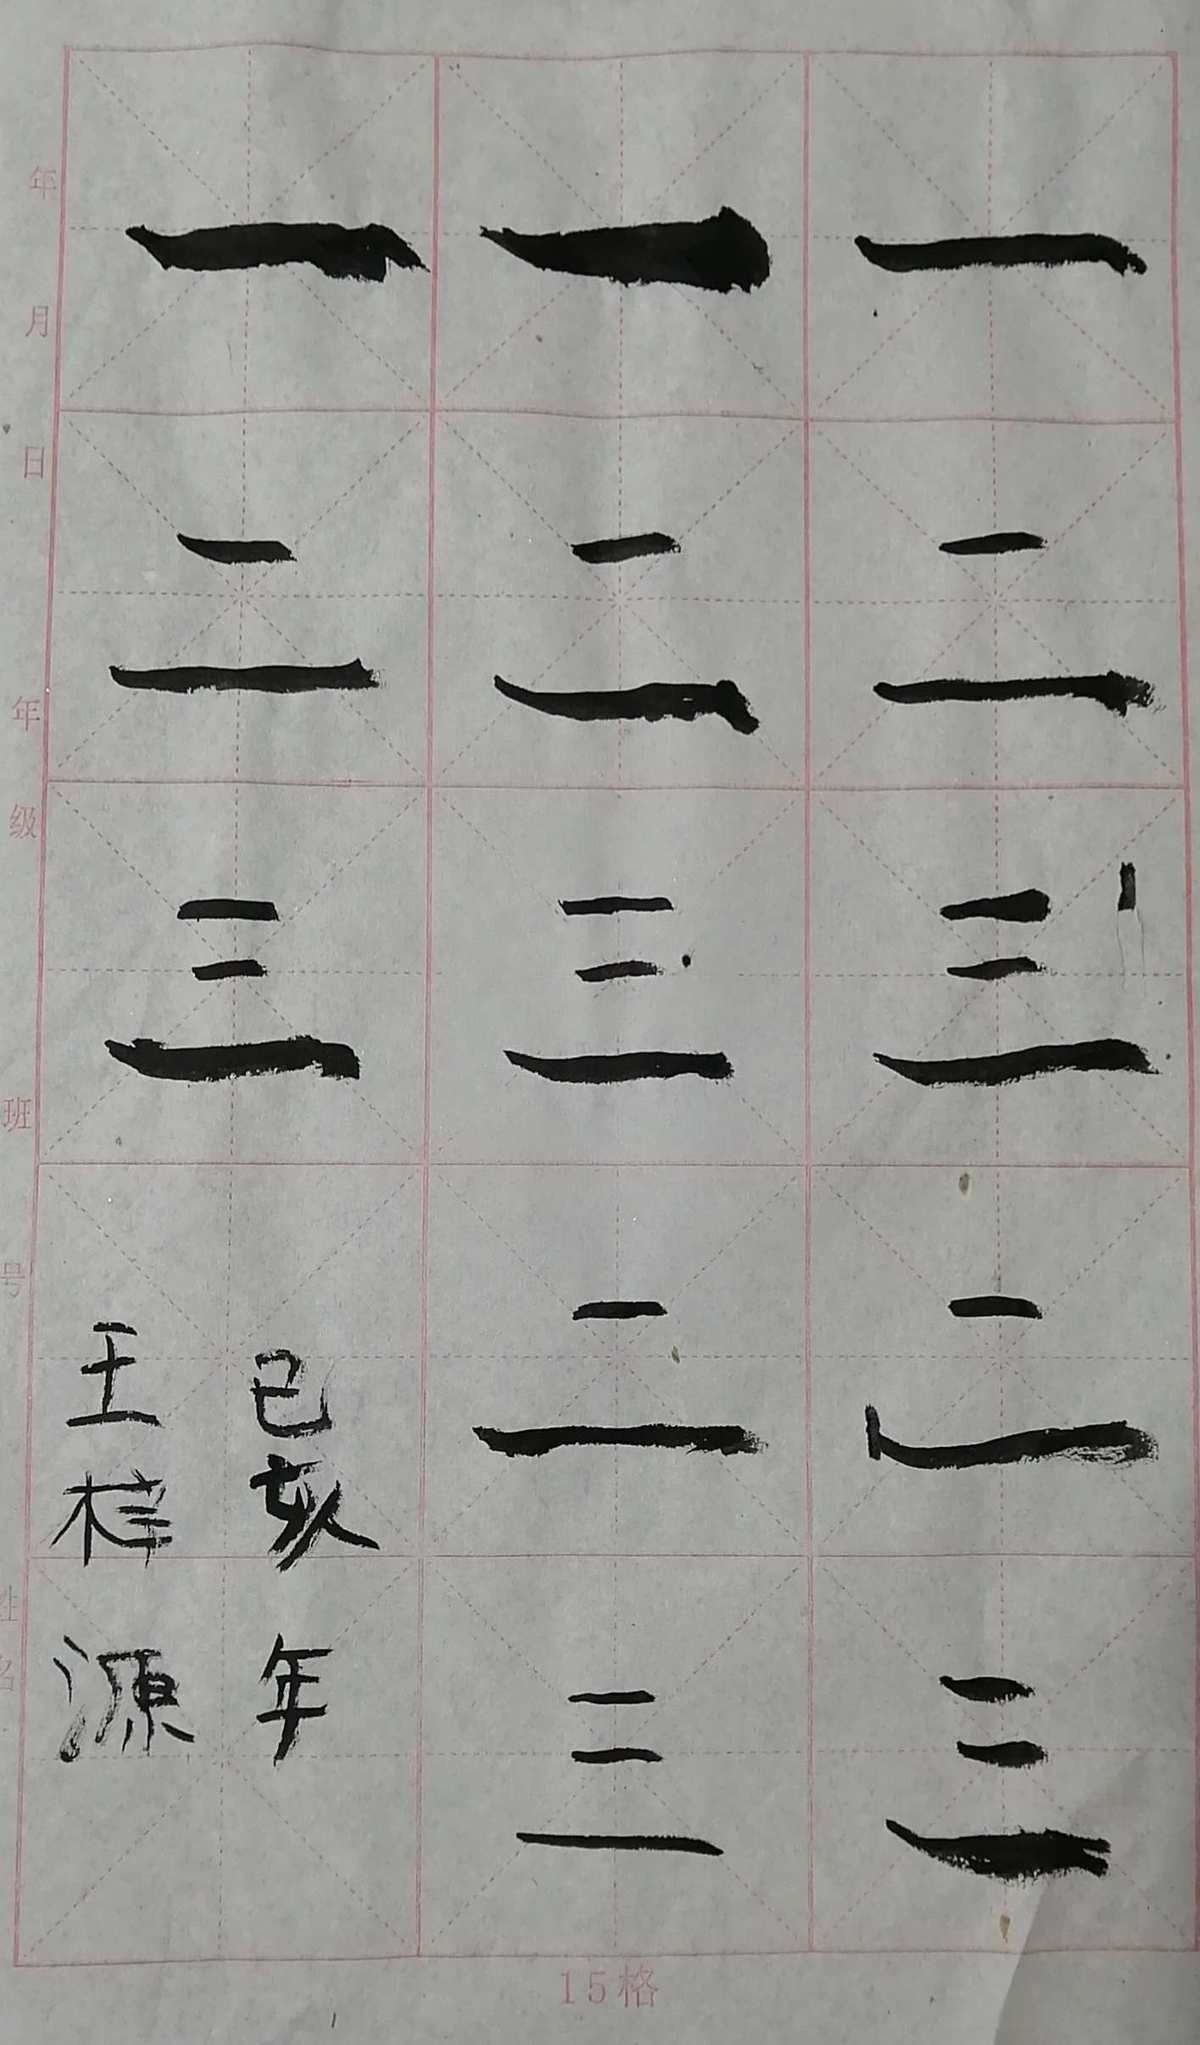 一 一 一
二 二 二
三 三 三
二 二
三 三
己亥年
王梓源
年 月 日
年级 班 号
姓名
15格